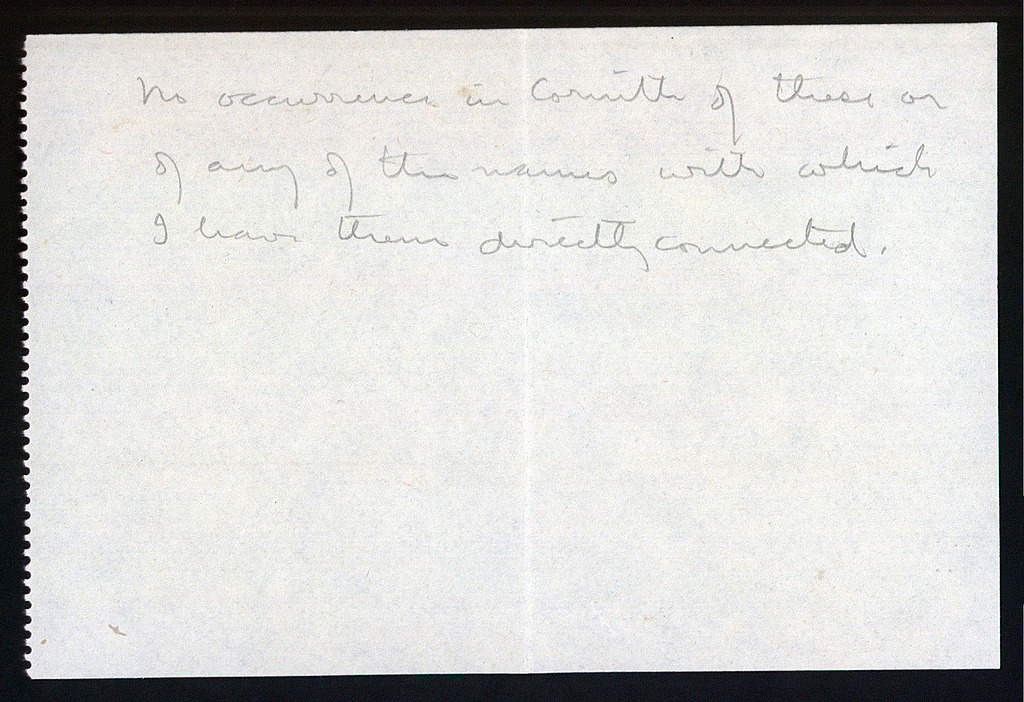 No occurrence in Corinth of these or
of any of the names with which
I have them directly connected.